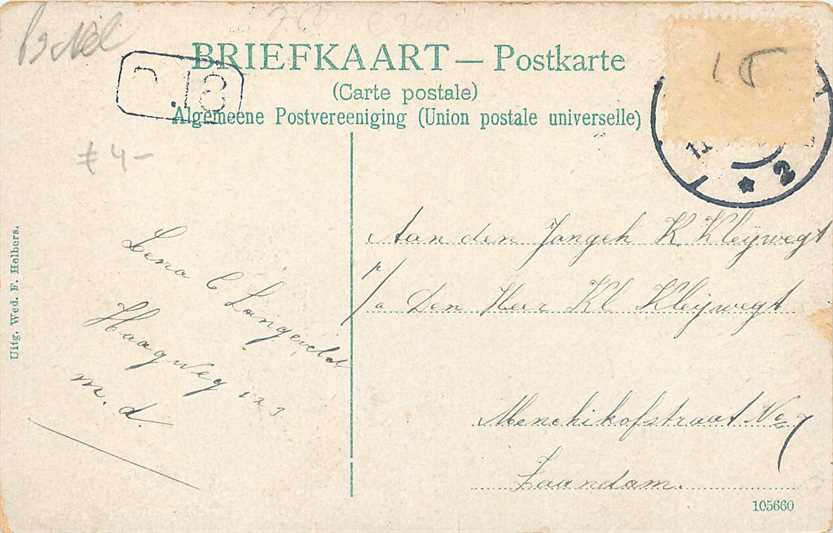 BRIEFKAART — Postkarte
(Carte postale)
Algemeene Postvereeniging (Union postale universelle)
4-
2
Uitg. Wed. F. Helbers.
Lena C Langeveld
Haagweg 123
m. d.
Aan den Jongeh K Kleijwegt
p/a Den Heer Kl Kleijwegt
Menchikofstraat No 7
Zaandam.
105660